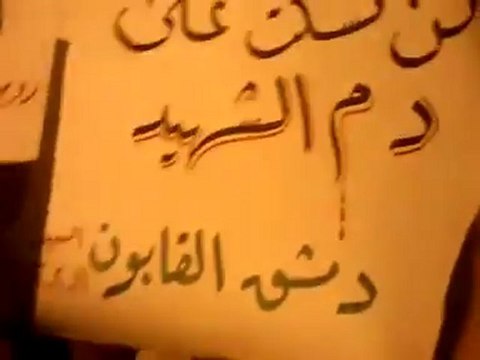 لن نسكت على
دم الشهيد
دمشق القابون